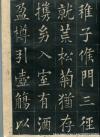 稚子候門三徑
就荒松菊猶存
攜幼入室有酒
盈樽引壺觴以